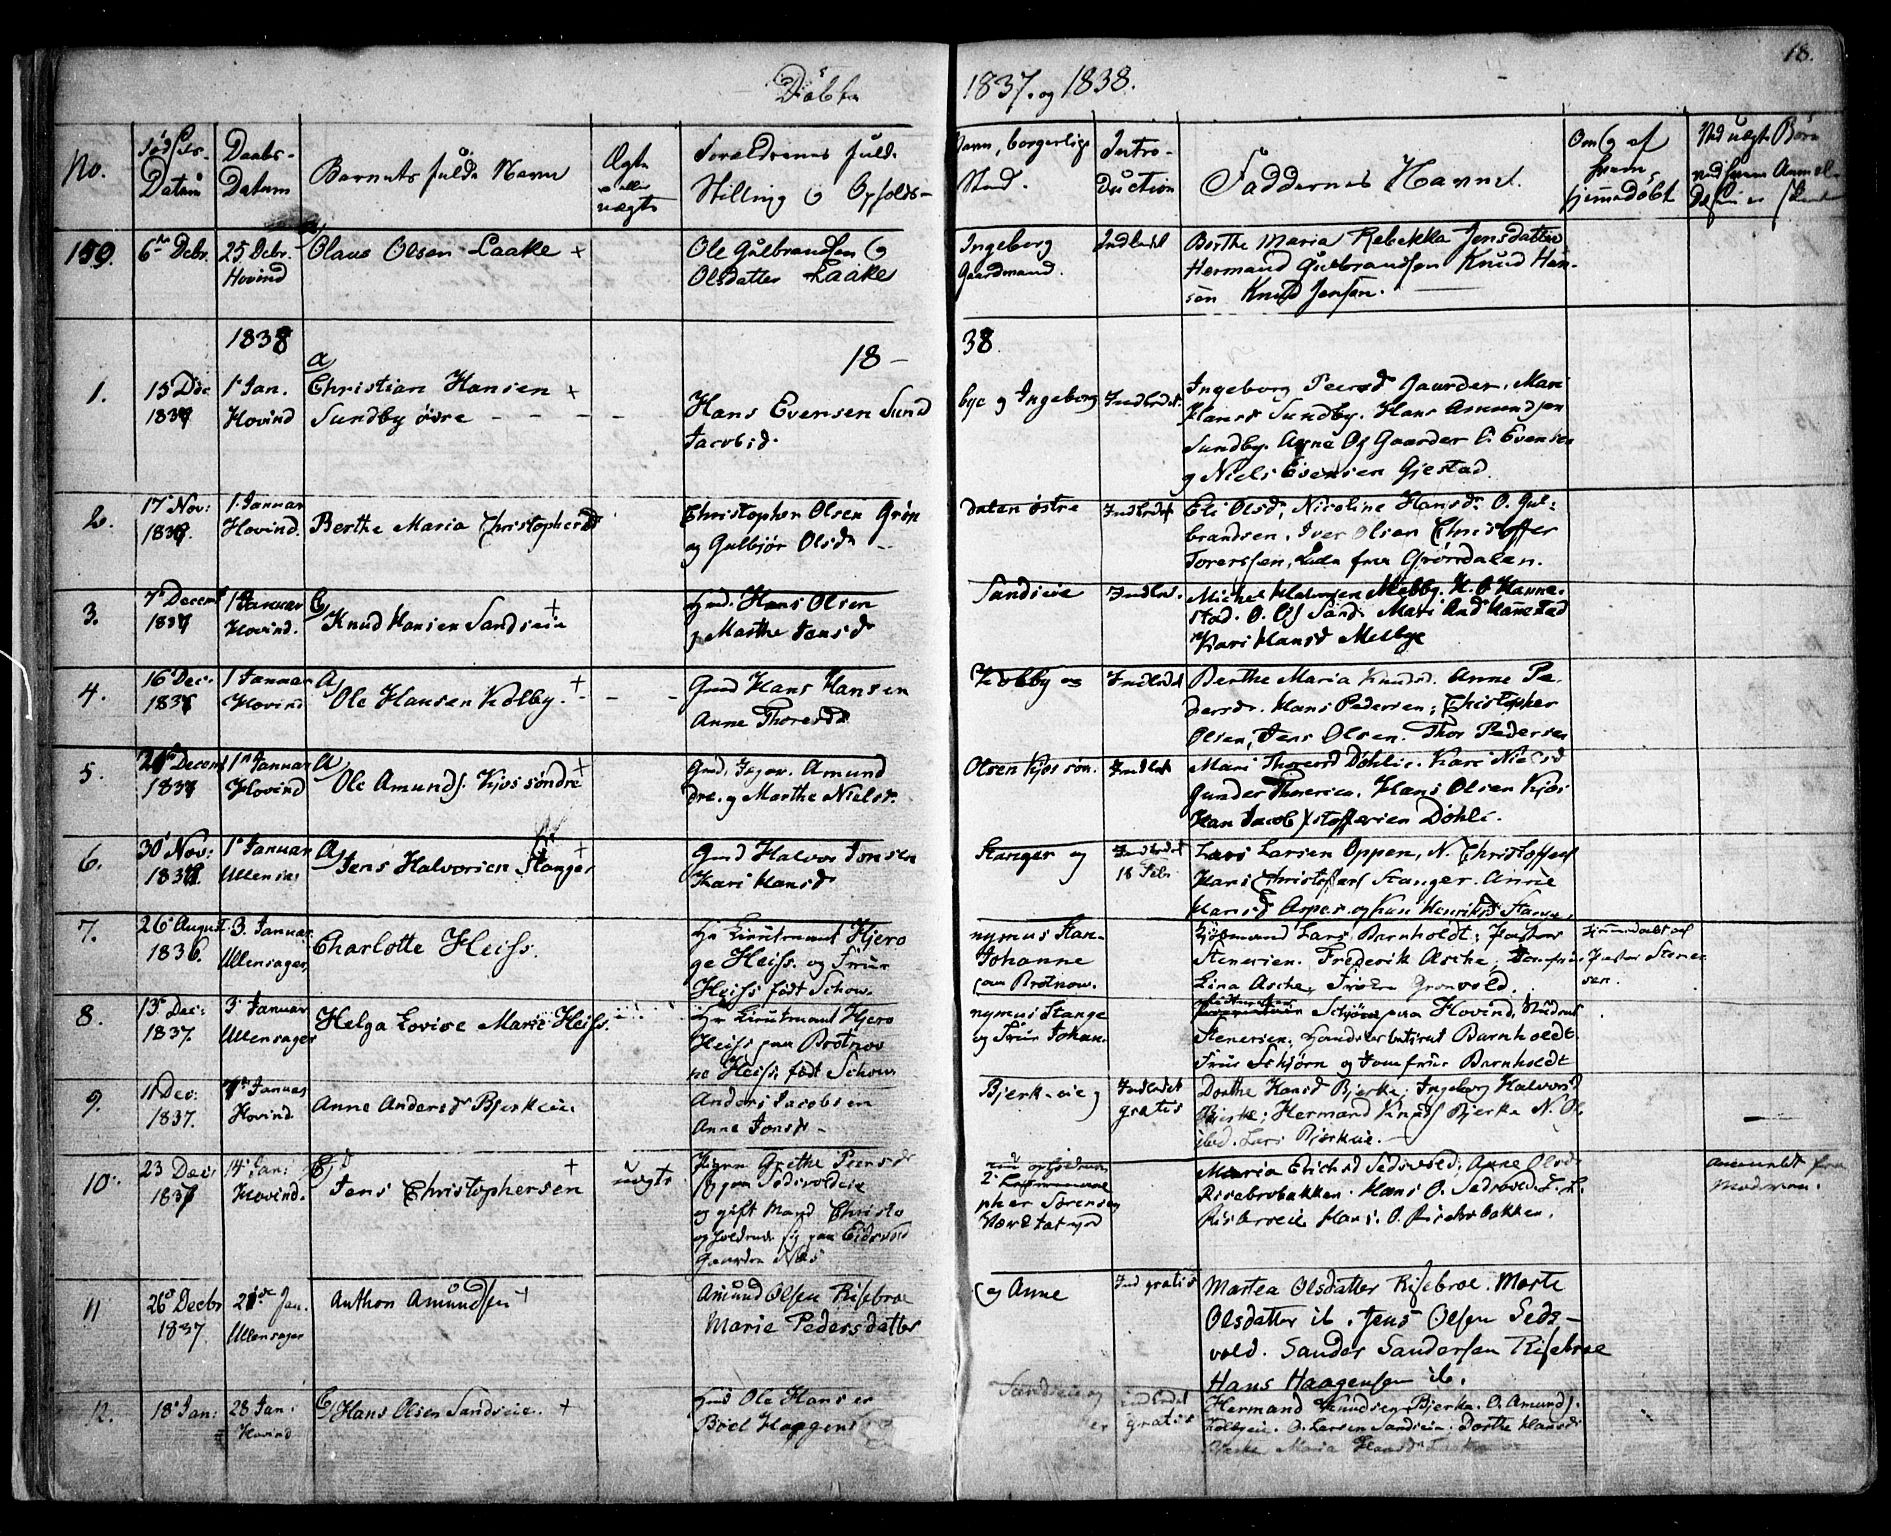 18.
Døbte 1837. og 1838.
No.
Fødsels-
Datum
Daabs-
Datum
Barnets fulde Navn
Ægte
eller
uægte
Foreldrenes fulde
Stilling og Opholds-
Navn, borgerlige
Sted.
Intro-
duction
Faddernes Navne.
Om og af
hvem
hjemmedøbt
159. 6te Decbr. 25 Decbr.
Hovind
Olaus Olsen Laake +
Ole Gulbrandsen og
Olsdatter Laake
Ingeborg
Gaardmand.
Indledet
Berthe Maria Rebekka Jensdatter
Hermand Gulbrandsen Knud Han-
sen Knud Jensen.
1838
18 - 38.
1. 15 Dec
1837
1 Jan.
Hovind
a
Christian Hansen +
Sundby øvre - - - -
Hans Evensen Sund
Jacobsd.
bye og Ingeborg
Indledet.
Ingeborg Peersd Gaarder. Mari
Hansd Sundby. Hans Amundsen
Sundby. Anne Gaarder Evensen
og Niels Evensen Gjestad.
2. 17 Nov:
1837.
1. Januar
Hovind.
Berthe Maria Christophersd
Christopher Olsen Grøn
og Gulbjør Olsd -
dalen østre
Indledet
Eli Olsd, Nicoline Hansd. O. Gul-
brandsen, Iver Olsen Christoffer
Torerssen, fra Grøndalen.
3. 7 Decem
1837
1 Januar
Hovind.
Knud Hansen Sandseie +
Hmd. Hans Olsen
og Marthe Jensd
Sandseie
Indled.
Michel Halvorsen Melby. H. O. Hanne-
stad. O. Sand. Mari And Hannestad
Kari Hansd Melbye
4. 16 Dec.
1837
1 Januar
Hovind
a
Ole Hansen Kolby. + - -
Gmd Hans Hansen
Anne Thoresd
Kolby og
Indledet
Berthe Maria Knudsd. Anne Pe-
dersd. Hans Pedersen; Christopher
Olsen, Jens Olsen. Thor Pedersen
5. Decem
1837
1 Januar
Hovind
a
Ole Amunds. Kjos søndre +
Gmd. Amund
dre. og Marthe Nielsd.
Olsen Kjos søn.
Indledt
Mari Thoresd Døhlie. Kari Nielsd
Hans Olsen Kjos
Jacob Døhli.
6. 30 Nov:
1837.
1 Januar
Ullensa.
a
Jens Halvorsen Stanger +
Gmd Halvor Jensen
Kari Hansd
Stanger og
Indledet
18 Feb.
Lars Larsen Oppen, N. Christoffers
Hans Stanger. Anne
Hansd og Kari Henriksd
7. 26 August
1836.
3. Januar
Ullensager
Charlotte Heiss.
Hr Lieutenant Hjero
ge Heiss. og Frue
Heiss født Schow.
nymus Stan-
Johanne
paa Brotnow.
Kjøbmand Lars Barnholdt; Pastor
Stenersen. Frederik Asche, Jomfrue
Lina Asche, Frøken Grønvold.
Hjemmedøbt af
Pastor Stener
sen.
8. 13 Dec:
1837.
3 Januar
Ullensager
Helga Lovise Marie Heiss.
Hr Lieutenant Hjero
Heiss paa Brotnov
ne Heiss. født Schow
nymus Stange
og Frue Johan
Schjørn paa Hovind, Student
Stenersen. Handelsbetient Barnholdt
Frue Schjørn og Jomfrue Barnholdt
9. 11 Dec:
1837.
Januar
Hovind.
Anne Andersd Bjerkeie.
Anders Jacobsen
Anne Jonsd. -
Bjerk-eie og
Indledet
gratis
Dorthe Hansd Bjerke; Ingeborg Halvorsd
Bjerke; Hermand Knuds Bjerke N. O.
ibid. Lars Bjerkeie. -
10. 23 Dec:
1837
14 Jan:
Hovind.
Jens Christophersen +
uægte
Pigen Grethe Peersd
paa Sedsvoldeie
og gift Mand Christo
og opholdende sig paa Eidsvold
gaarden Næs
pher Sørensen
Maria Erichsd Sedsvold; Anne Olsd.
Risebrobakken. Hans O. Sedsvold. L. L.
Risebroeie Hans. O. Risebrobakken.
Anmeldt fra
Moderen.
11 26 Decbr
1837.
21de Jan.
Ullensager
Anthon Amundsen +
Amund Olsen Risebroe
Marie Pedersdatter
og Anne
Ind gratis
Martea Olsdatter Risebroe. Marte
Olsdatter ib. Jens Olsen Seds-
vold. Sander Sandersen Risebroe
Hans Haagensen ib.
12. 18 Jan:
28 Jan.
Hovind
Hans Olsen Sandseie. +
Hmd Ole Hansen
Boel Haggens
Sandseie og
Indledet
gratis
Hermand Knudsen Bjerke. O. Amunds.
Kolbyeie. O. Larsen Sandseie. Dorthe Hansd
Maria Hansd